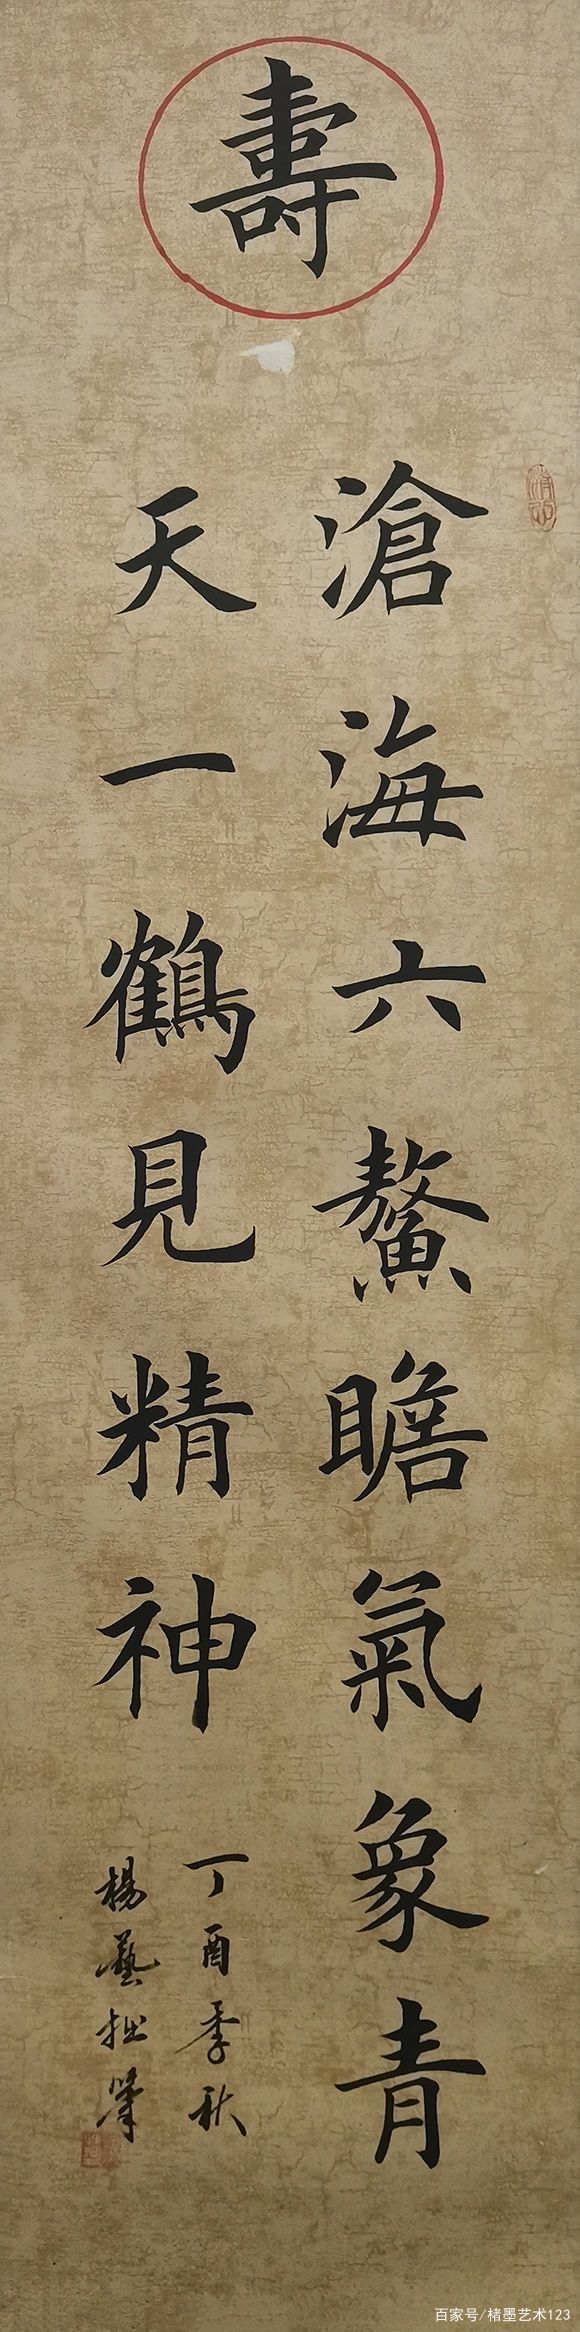 壽
滄海六鰲瞻氣象青
天一鶴見精神
丁酉季秋
楊藝拙筆
百家号/楮墨艺术123